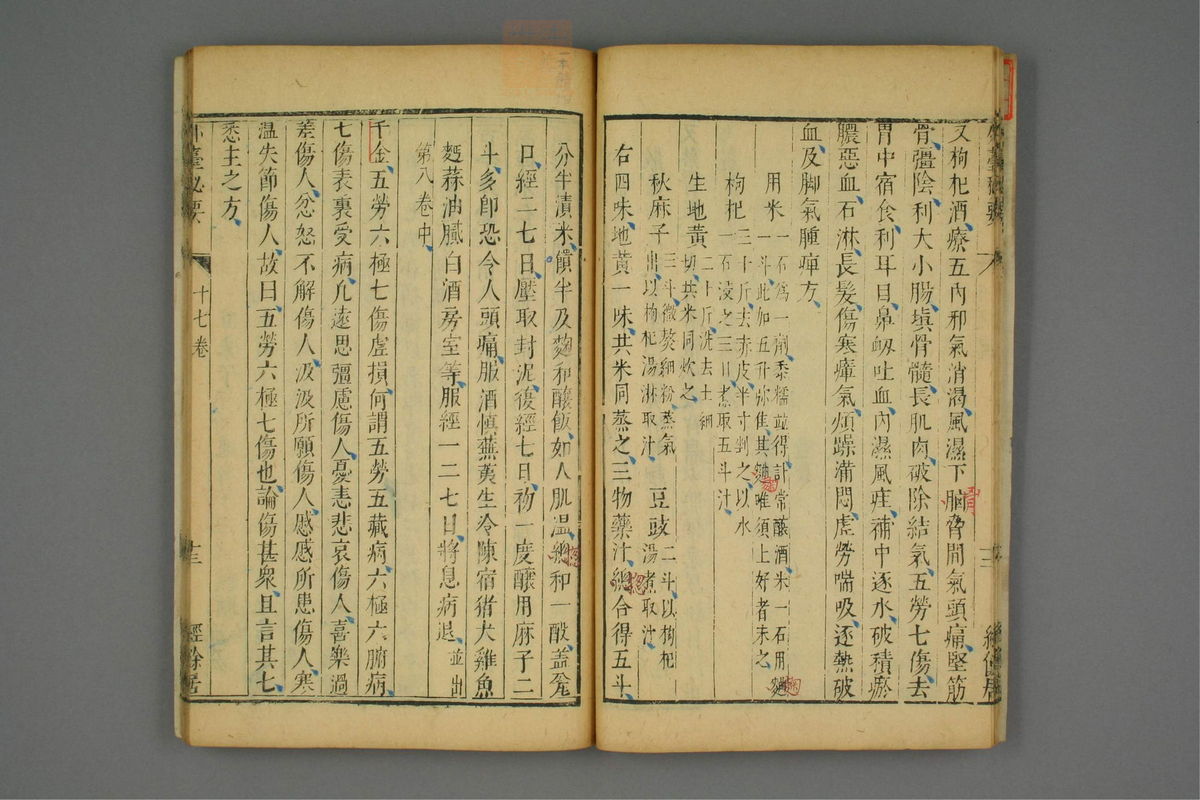 又枸杞酒療五內邪氣消渴風濕下脇脅間氣頭痛堅筋
骨彊陰利大小腸塡骨髓長肌肉破除結氣五勞七傷去
胃中宿食利耳目鼻衂吐血內濕風痓補中逐水破積瘀
膿惡血石淋長髮傷寒瘴氣煩躁滿悶虛勞喘吸逐熱破
血及脚氣腫痺方
用米一石爲一劑黍糯並得計常釀酒米一石用麴
一斗此加五升彌佳其麴唯須上好者末之
枸杞三十斤去赤皮半寸剉之以水
一石浸之三日煮取五斗汁
生地黃二十斤洗去土細
切共米同炊之
秋麻子三斗微熬細粉蒸氣
出以枸杞湯淋取汁
豆豉二斗以枸杞
湯煮取汁
右四味地黃一味共米同蒸之三物藥汁總合得五斗
分半漬米饙半及麴和釀飯如人肌溫總和一酘蓋瓮
口經二七日壓取封泥復經七日初一度釀用麻子二
斗多卽恐令人頭痛服酒慎蕪荑生冷陳宿猪犬雞魚
麪蒜油膩白酒房室等服經一二七日將息病退並出
第八卷中
千金五勞六極七傷虛損何謂五勞五藏病六極六腑病
七傷表裏受病凡遠思彊慮傷人憂恚悲哀傷人喜樂過
差傷人忿怒不解傷人汲汲所願傷人慼慼所患傷人寒
溫失節傷人故曰五勞六極七傷也論傷甚衆且言其七
悉主之方
外臺秘要
十七卷
十三
經餘居